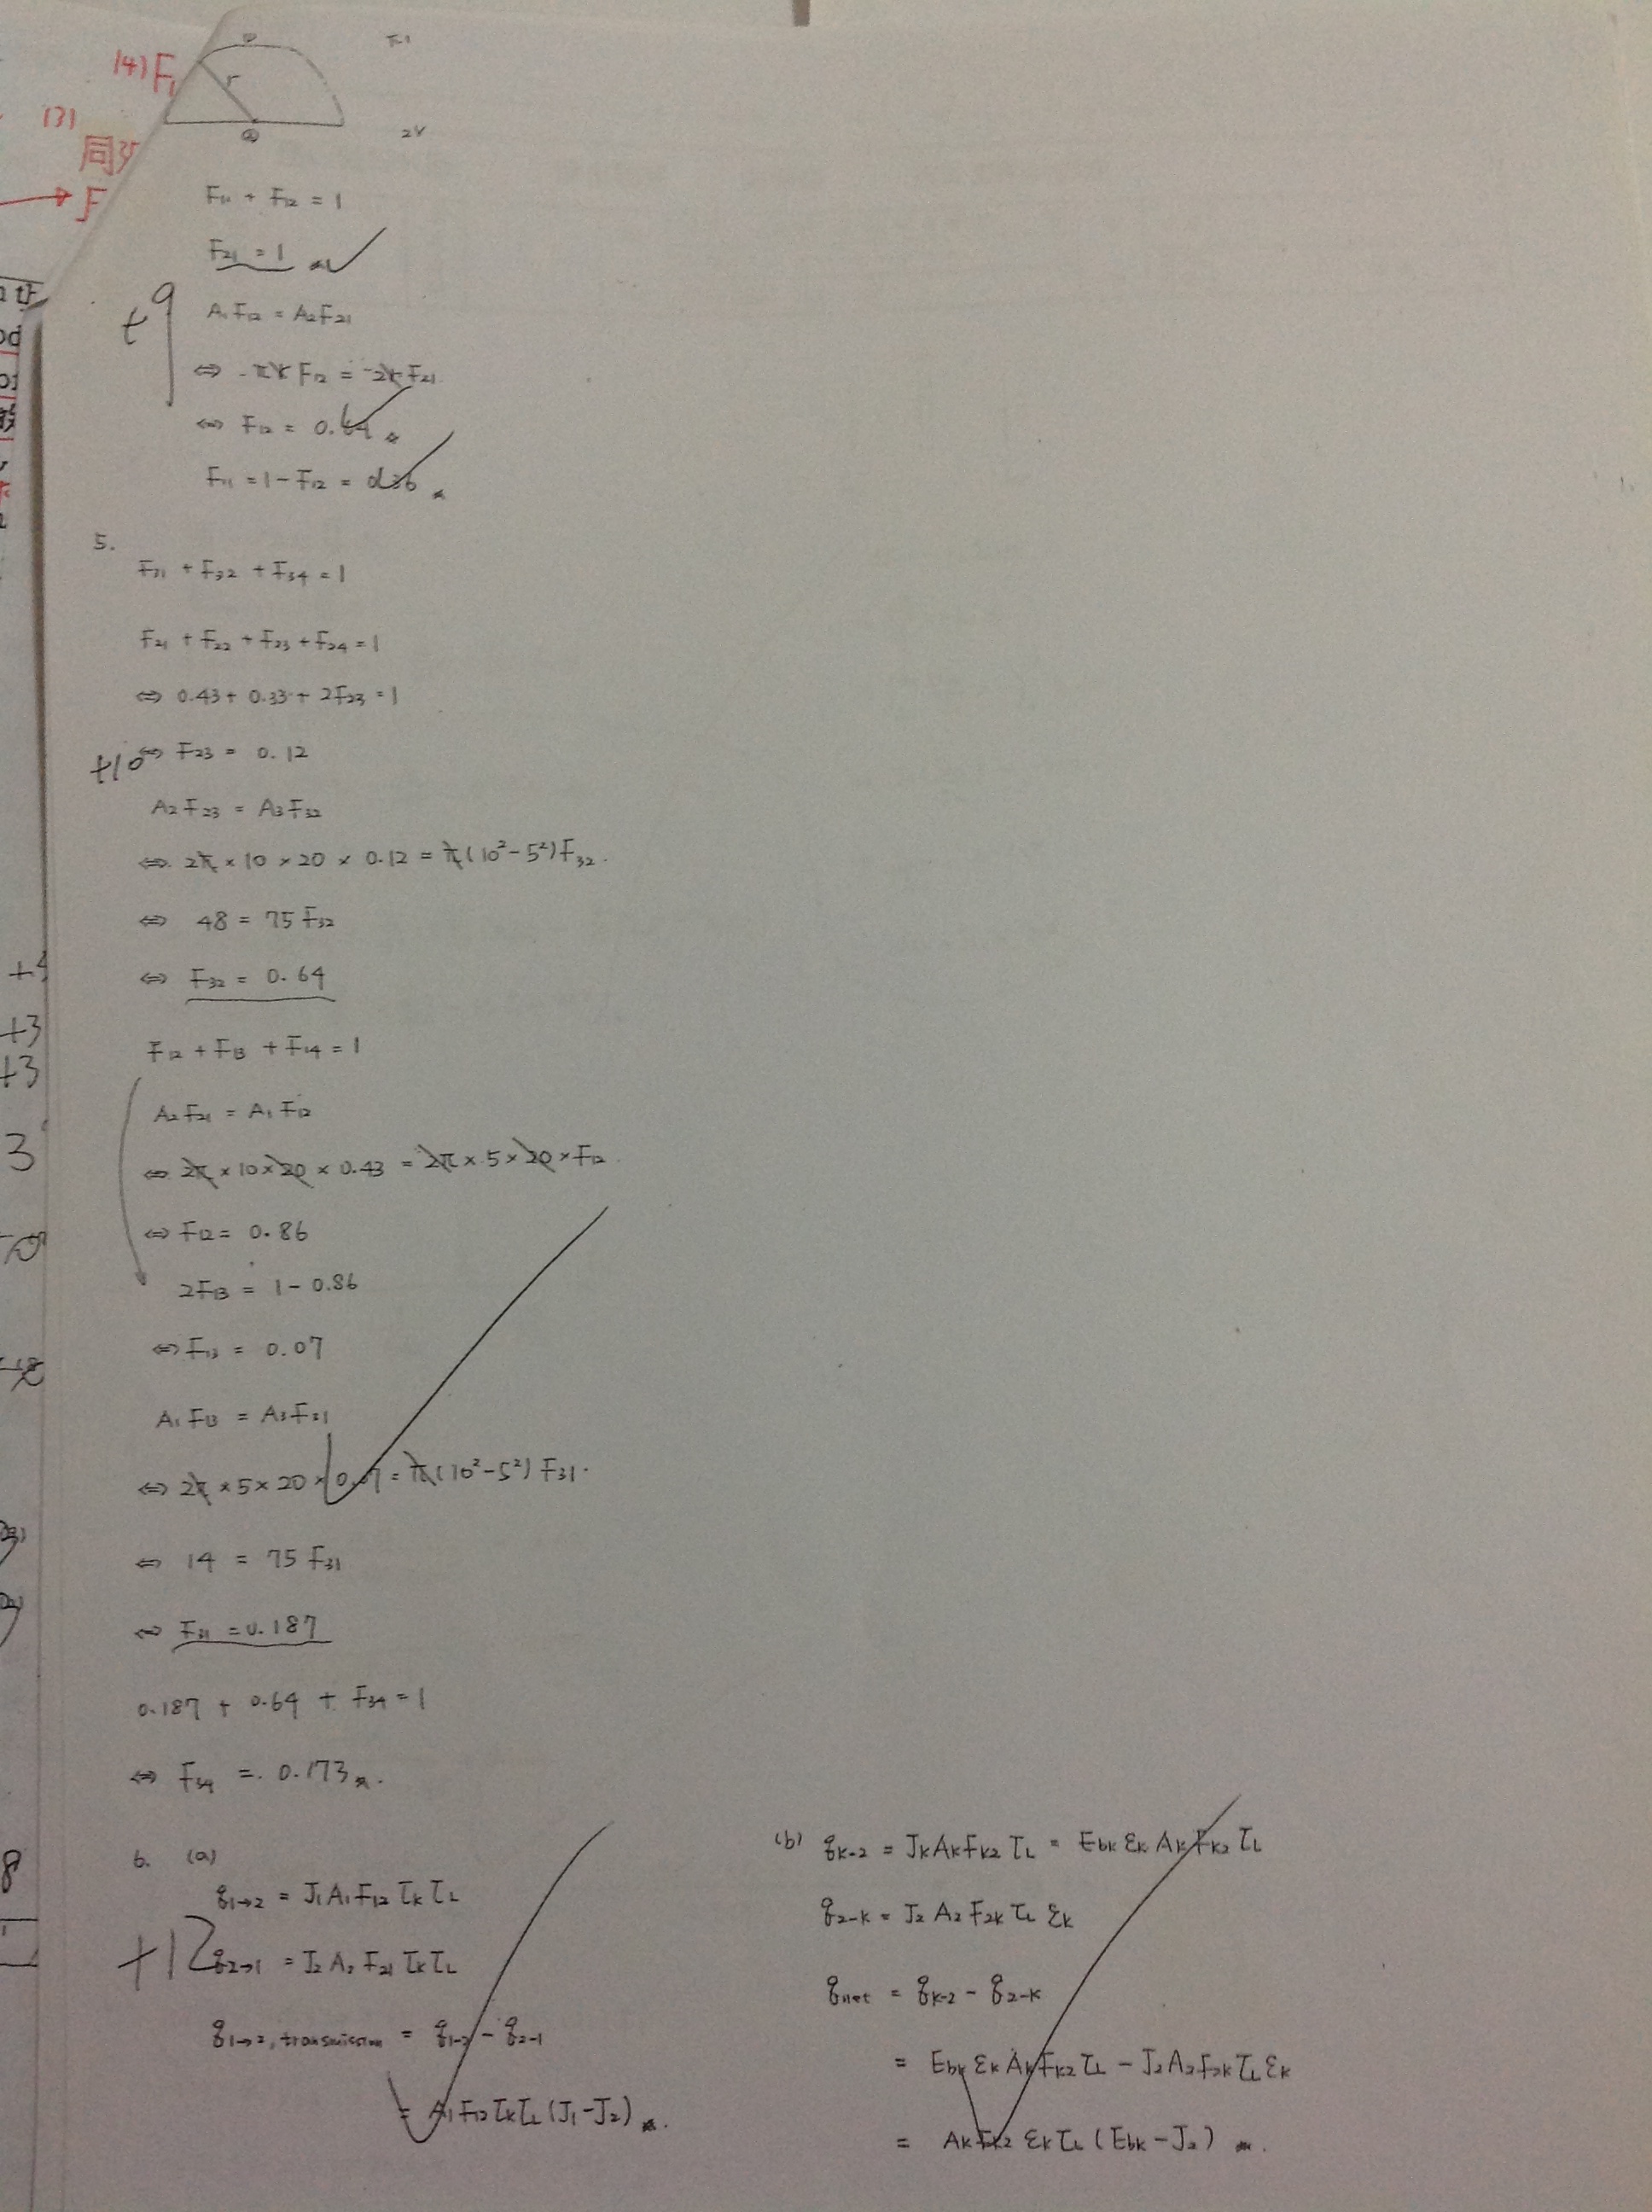 (4) F₁
(3)
同35
→ F
①
r
②
2r
F₁₁ + F₁₂ = 1
F₂₁ = 1
+9
A₁F₁₂ = A₂F₂₁
⇔ πr F₁₂ = 2r F₂₁
⇔ F₁₂ = 0.64
F₁₁ = 1 - F₁₂ = 0.36
5.
F₃₁ + F₃₂ + F₃₄ = 1
F₂₁ + F₂₂ + F₂₃ + F₂₄ = 1
⇔ 0.43 + 0.33 + 2F₂₃ = 1
+10
⇔ F₂₃ = 0.12
A₂F₂₃ = A₃F₃₂
⇔ 2π × 10 × 20 × 0.12 = π(10² - 5²)F₃₂.
⇔ 48 = 75 F₃₂
⇔ F₃₂ = 0.64
F₁₂ + F₁₃ + F₁₄ = 1
A₂F₂₁ = A₁F₁₂
⇔ 2π × 10 × 20 × 0.43 = 2π × 5 × 20 × F₁₂
⇔ F₁₂ = 0.86
2F₁₃ = 1 - 0.86
⇔ F₁₃ = 0.07
A₁F₁₃ = A₃F₃₁
⇔ 2π × 5 × 20 × 0.07 = π(10² - 5²) F₃₁.
⇔ 14 = 75 F₃₁
⇔ F₃₁ = 0.187
0.187 + 0.64 + F₃₄ = 1
⇔ F₃₄ = 0.173
6. (a)
q₁→₂ = J₁A₁F₁₂ τₖ τ_L
+12
q₂→₁ = J₂A₂F₂₁ τₖ τ_L
q₁→₂, transmission = q₁₋₂ - q₂₋₁
= A₁F₁₂ τₖ τ_L (J₁ - J₂)
(b) qₖ₋₂ = JₖAₖFₖ₂ τ_L = Ebₖ εₖ Aₖ Fₖ₂ τ_L
q₂₋ₖ = J₂ A₂ F₂ₖ τ_L εₖ
q_net = qₖ₋₂ - q₂₋ₖ
= Ebₖ εₖ Aₖ Fₖ₂ τ_L - J₂A₂F₂ₖ τ_L εₖ
= AₖFₖ₂ εₖ τ_L (Ebₖ - J₂)
+3
+3
3
8